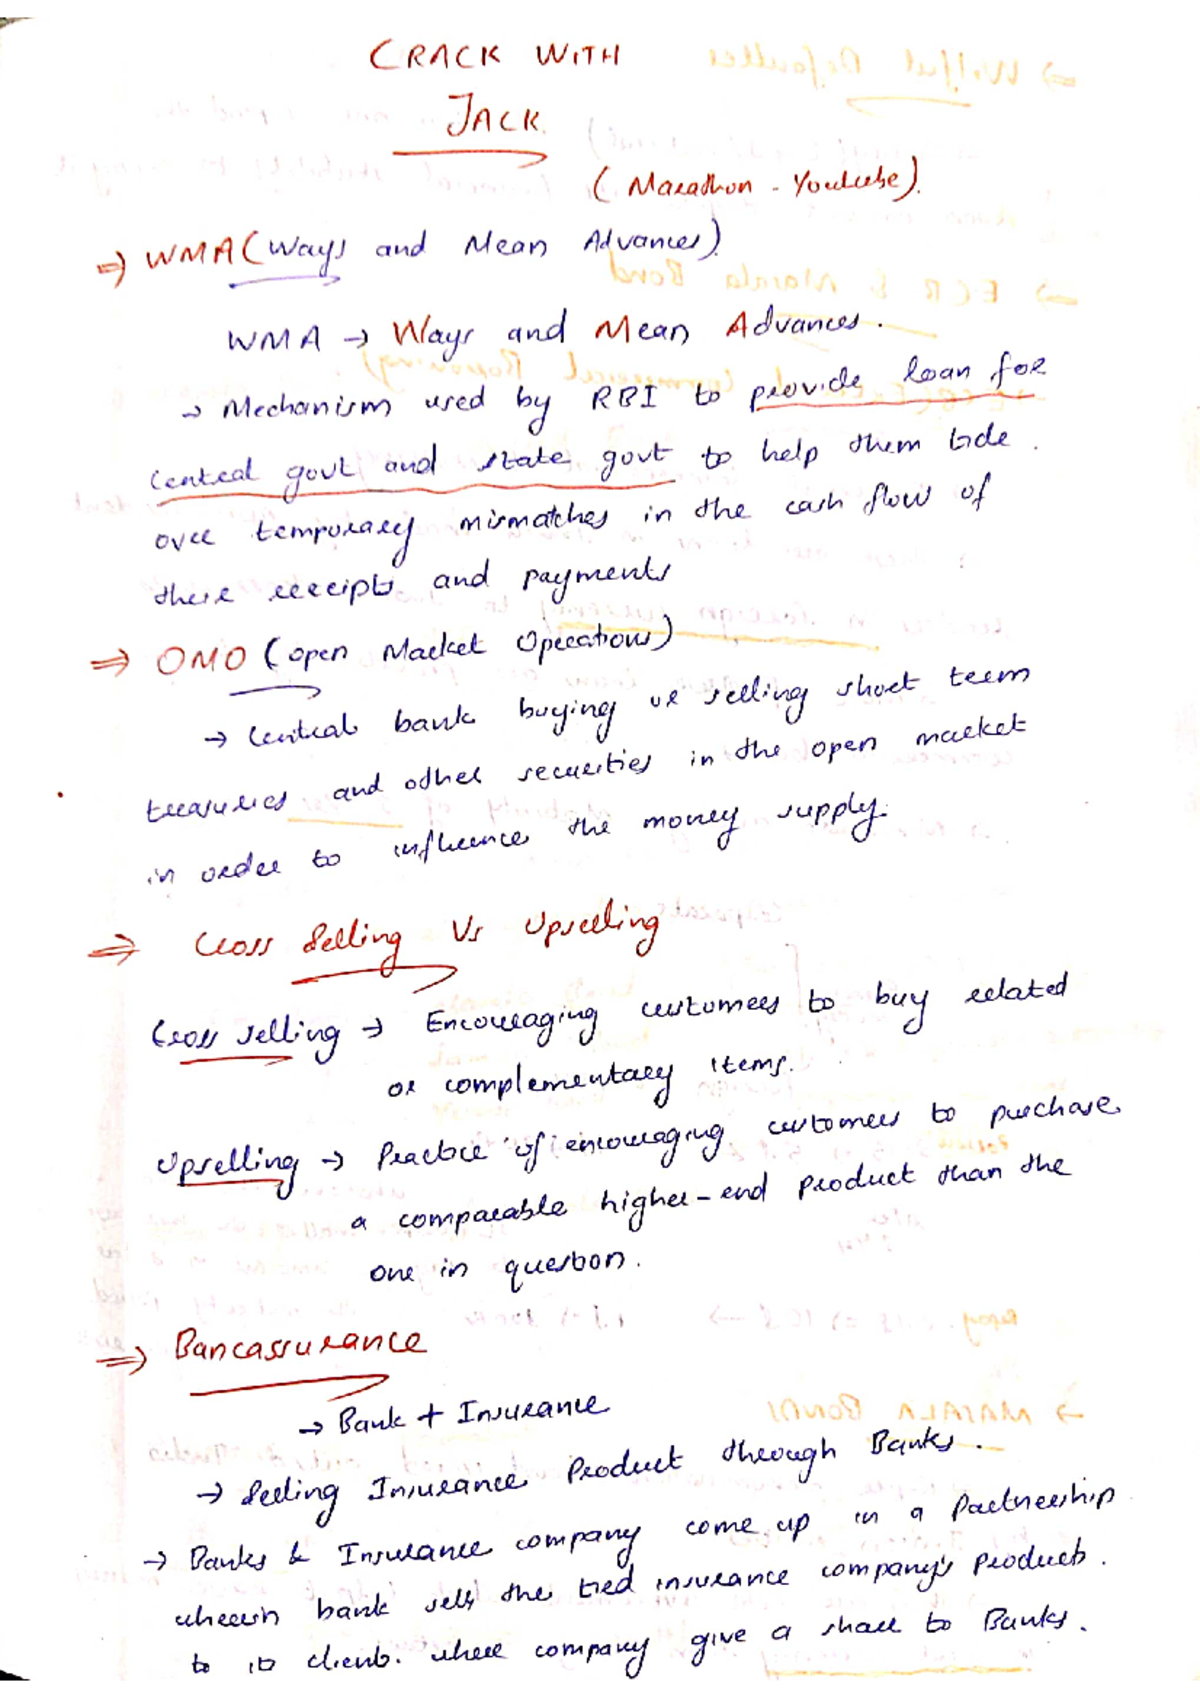 CRACK WITH
JACK.
(Marathon - Youtube).
⇒ WMA (Ways and Mean Advances)
WMA → Ways and Mean Advances.
→ Mechanism used by RBI to provide loan for
central govt and state govt to help them tide
over temporary mismatches in the cash flow of
there receipts and payments
⇒ OMO (open Market Operations)
→ Central bank buying or selling short term
treasuries and other securities in the open market
in order to influence the money supply.
⇒ Cross Selling Vs Upselling
Cross selling → Encouraging customers to buy related
or complementary items.
Upselling → Practice of encouraging customers to purchase
a comparable higher-end product than the
one in question.
⇒ Bancassurance
→ Bank + Insurance
→ Selling Insurance Product through Banks.
→ Banks & Insurance company come up in a Partnership
wherein bank sells the tied insurance company's products.
to its clients. where company give a share to Banks.